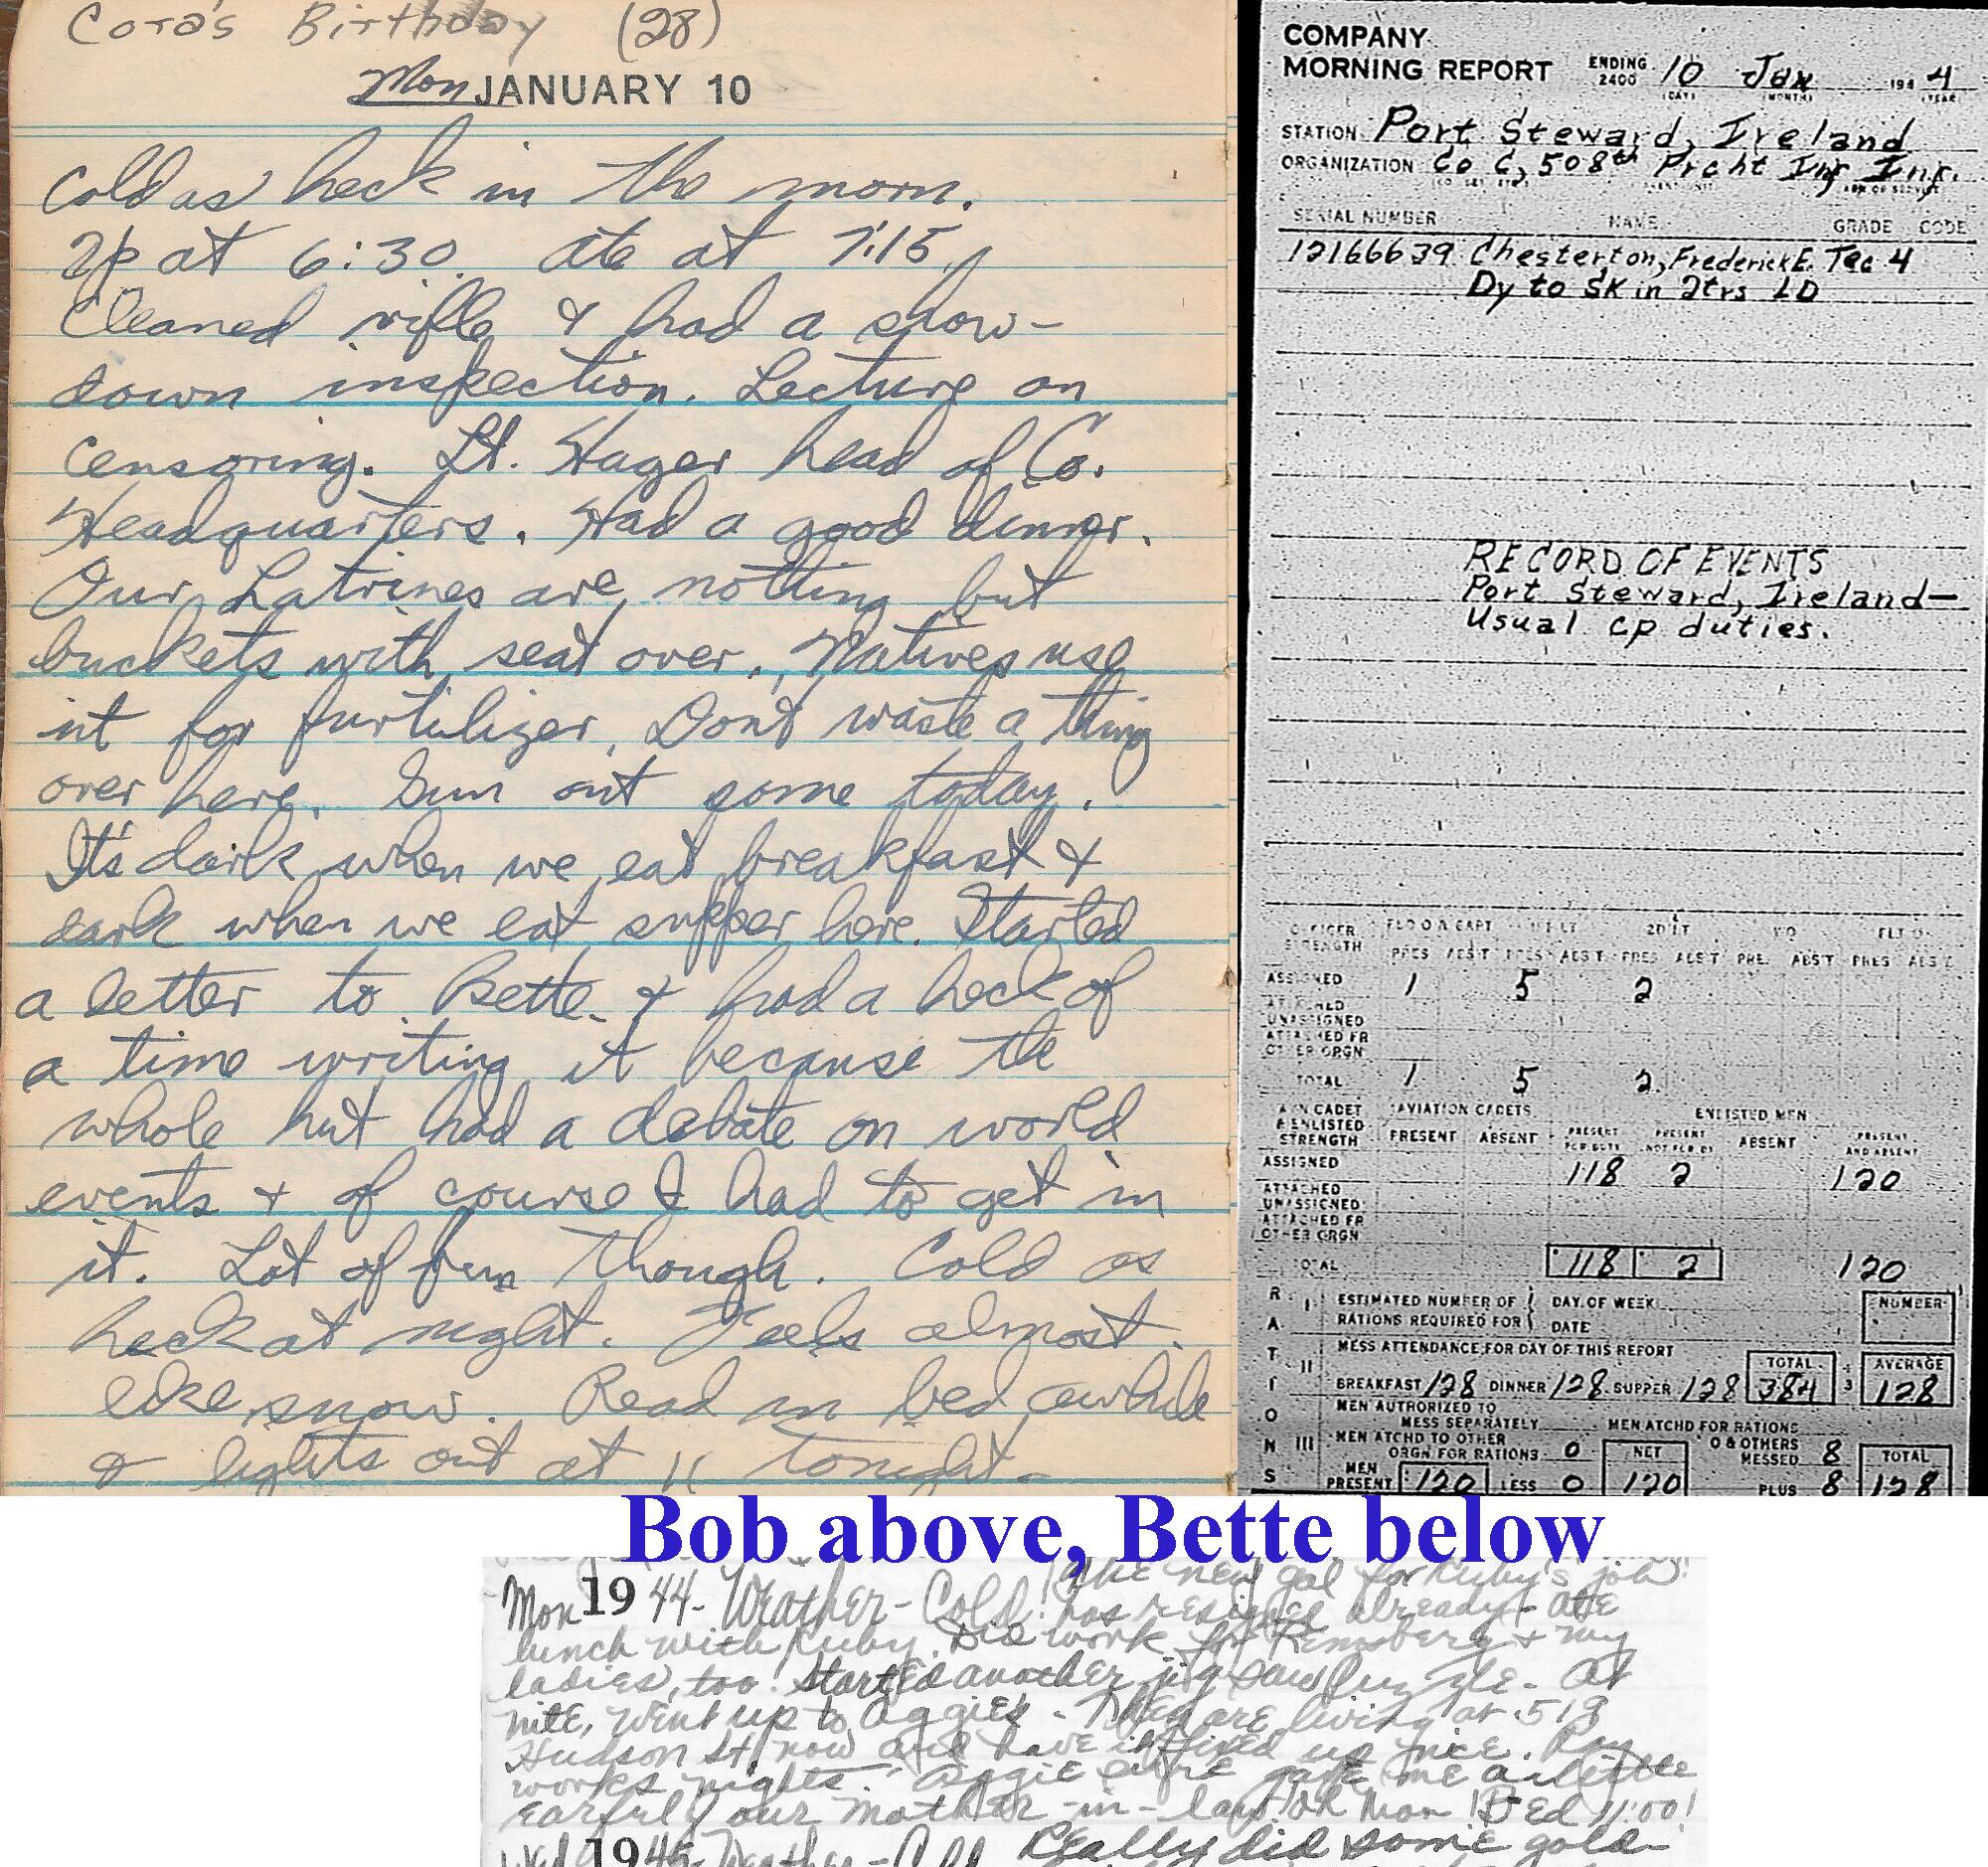 Cora's Birthday (28)
Mon JANUARY 10
Cold as heck in the morn.
Up at 6:30. Ate at 7:15.
Cleaned rifle & had a show-
down inspection. Lecture on
censoring. Lt. Hager head of Co.
Headquarters. Had a good dinner.
Our Latrines are nothing but
buckets with seat over. Natives use
it for furtilizer. Dont waste a thing
over here. Sun out some today.
It's dark when we eat breakfast &
dark when we eat supper here. Started
a letter to Bette & had a heck of
a time writing it because the
whole hut had a debate on world
events & of course I had to get in
it. Lot of fun though. Cold as
heck at night. Feels almost
like snow. Read in bed awhile
& lights out at 11 tonight.
COMPANY
MORNING REPORT ENDING 2400 10 Jan 1944
(DAY) (MONTH) (YEAR)
STATION Port Steward, Ireland
ORGANIZATION Co C, 508th Prcht Inf Inf.
SERIAL NUMBER NAME GRADE CODE
12166639 Chesterton, Frederick E. Tec 4
Dy to SK in 2trs LD
RECORD OF EVENTS
Port Steward, Ireland—
Usual cp duties.
OFFICER STRENGTH FLD O & CAPT 1ST LT 2D LT WO FLT O
PRES ABS'T PRES ABS'T PRES ABS'T PRE. ABS'T PRES ABS'T
ASSIGNED 1 5 2
ATTACHED UNASSIGNED
ATTACHED FR OTHER ORGN
TOTAL 1 5 2
AVN CADET & ENLISTED STRENGTH AVIATION CADETS ENLISTED MEN
PRESENT ABSENT PRESENT FOR DUTY PRESENT NOT FOR DY ABSENT PRESENT AND ABSENT
ASSIGNED 118 2 120
ATTACHED UNASSIGNED
ATTACHED FR OTHER ORGN
TOTAL 118 2 120
RATIONS
I ESTIMATED NUMBER OF RATIONS REQUIRED FOR DAY OF WEEK DATE NUMBER
II MESS ATTENDANCE FOR DAY OF THIS REPORT TOTAL AVERAGE
BREAKFAST 128 DINNER 128 SUPPER 128 384 3 128
MEN AUTHORIZED TO MESS SEPARATELY MEN ATCHD FOR RATIONS
III MEN ATCHD TO OTHER ORGN FOR RATIONS 0 NET O & OTHERS MESSED 8 TOTAL
MEN PRESENT 120 LESS 0 120 PLUS 8 128
Bob above, Bette below
The new gal for Ruby's job
Mon 1944- Weather - Cold! has resigned already - Ate
lunch with Ruby. Did work for Remsberg & my
ladies, too. Started another jig saw puzzle. At
nite, went up to Aggie's - They are living at 519
Hudson St. now and have it fixed up nice. Ray
works nights. Aggie sure gave me a little
earful, our mother-in-law! Oh Mom! Bed 11:00!
Wed 1945 - Weather - Cold Really did some gold-